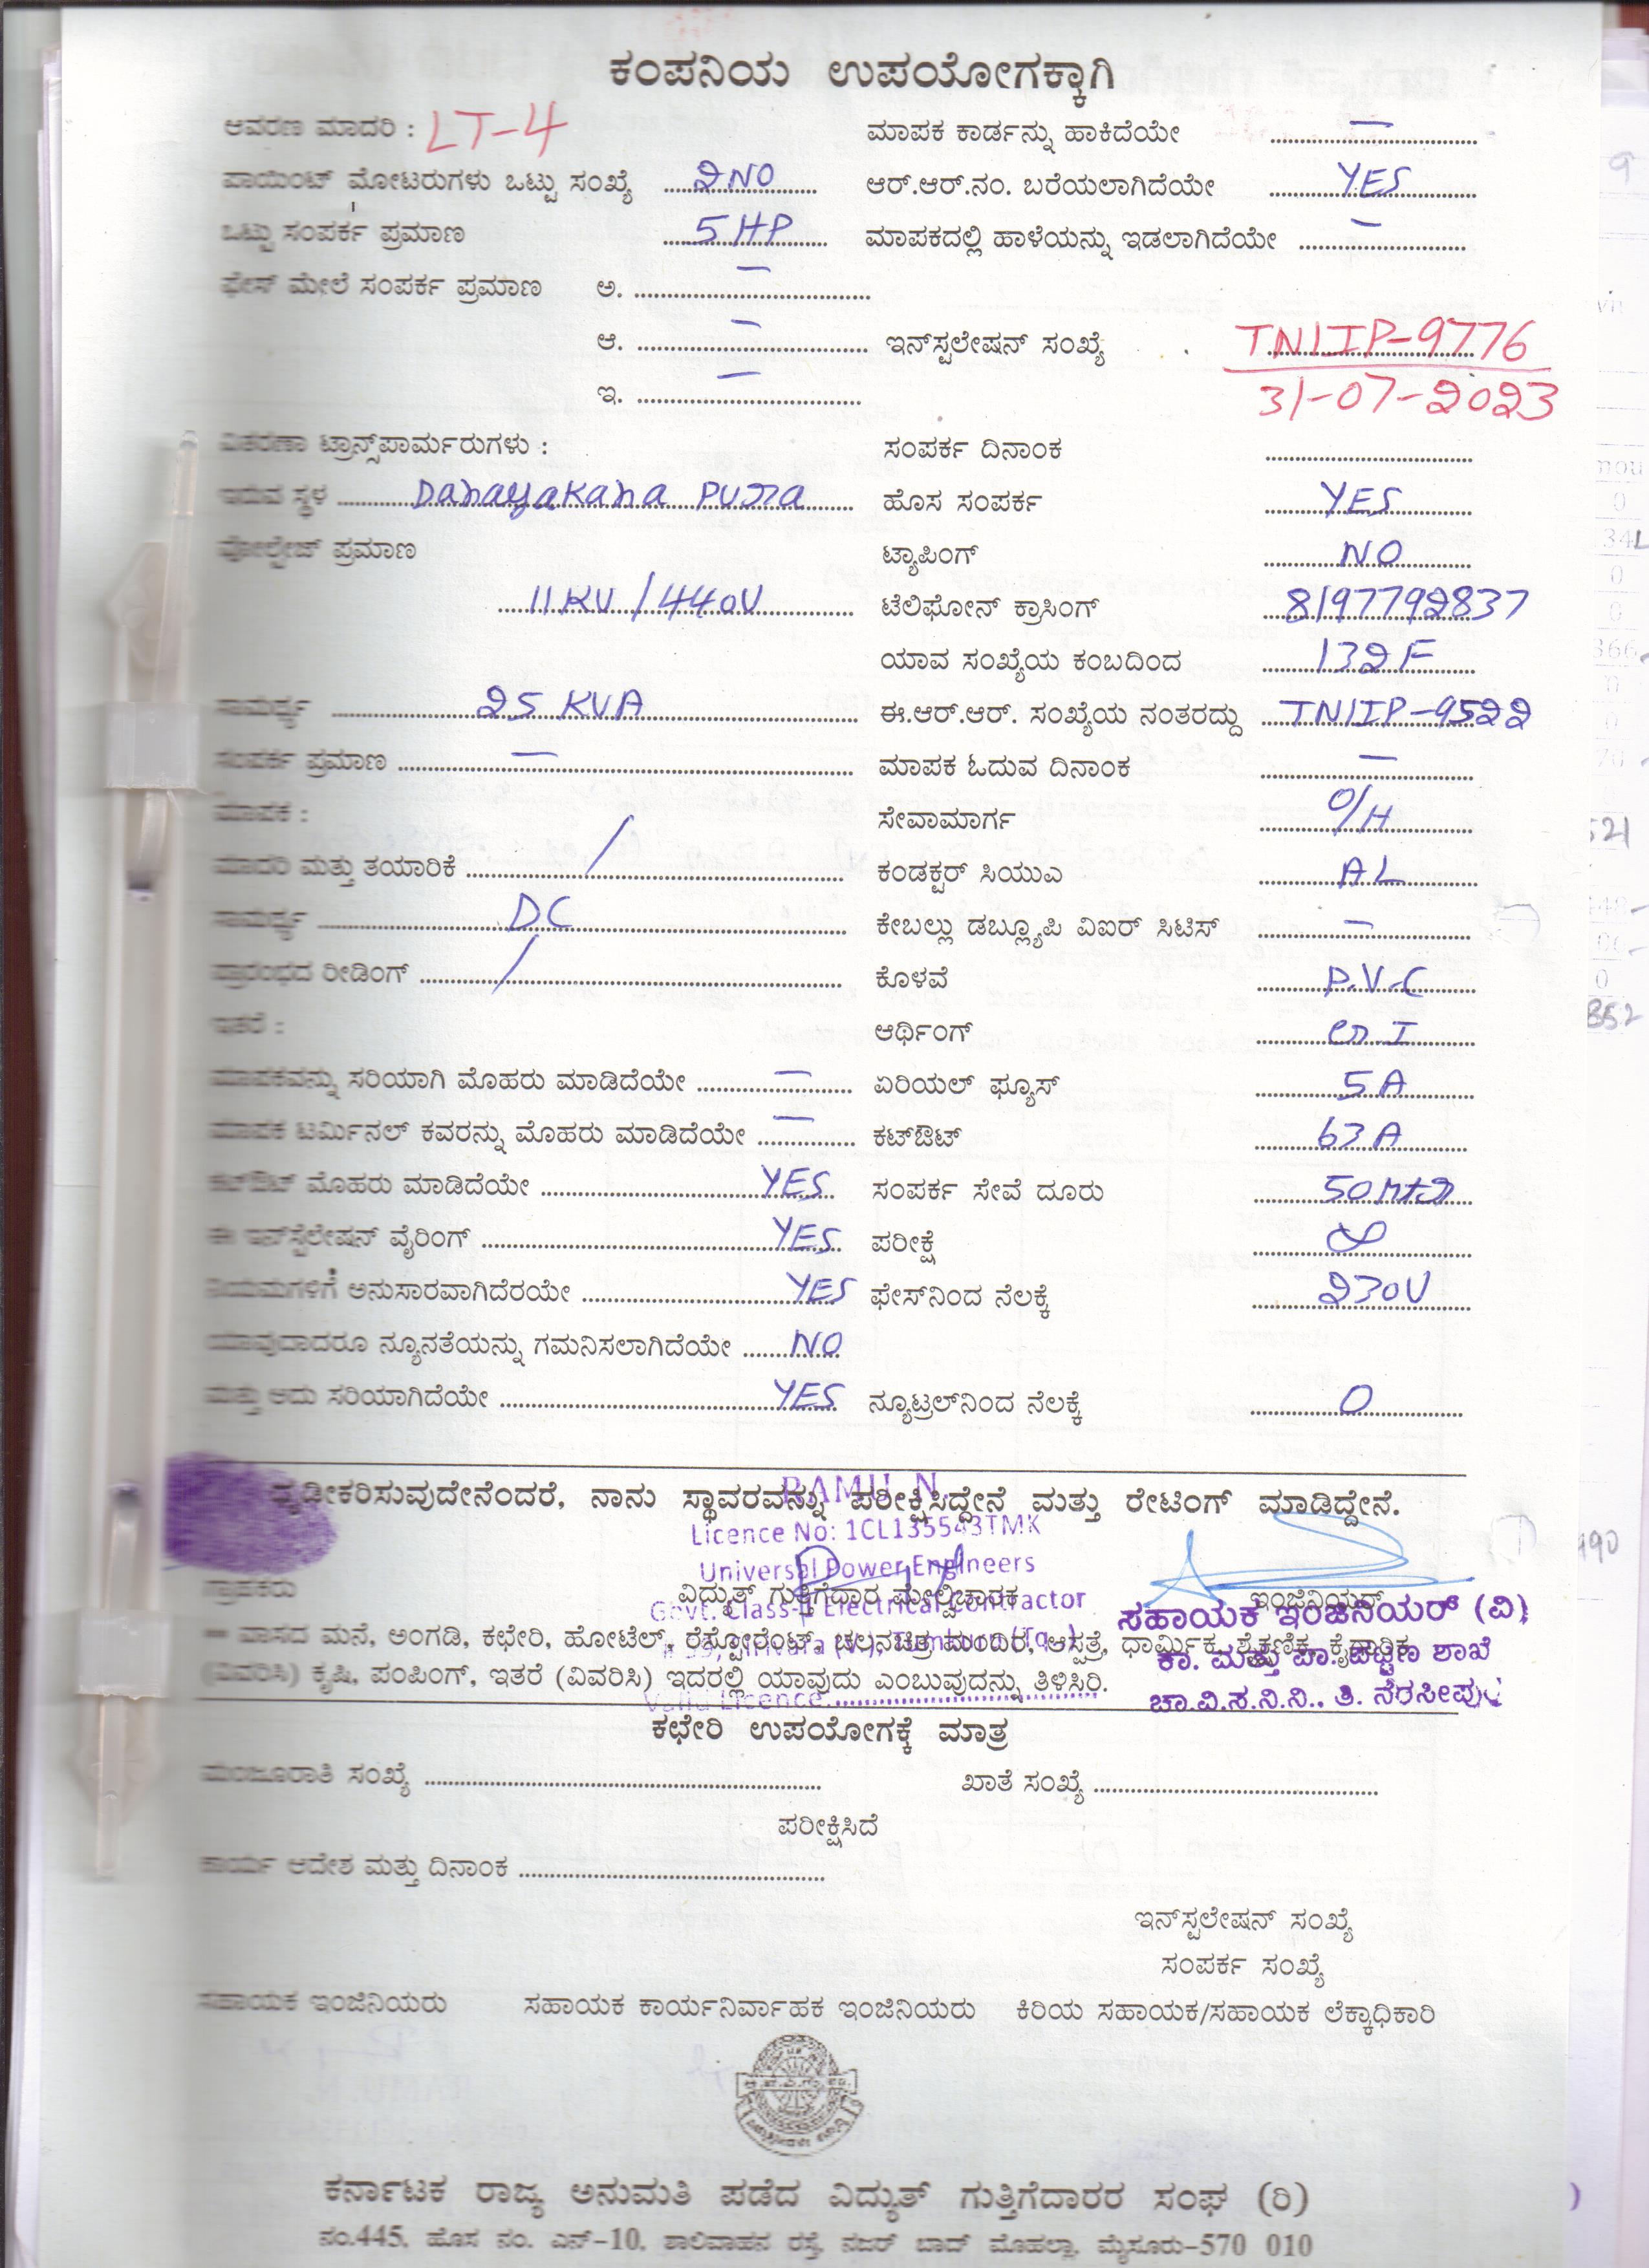 ಕಂಪನಿಯ ಉಪಯೋಗಕ್ಕಾಗಿ
ಆವರಣ ಮಾದರಿ : LT-4 ಮಾಪಕ ಕಾರ್ಡನ್ನು ಹಾಕಿದೆಯೇ —
ಪಾಯಿಂಟ್ ಮೋಟರುಗಳು ಒಟ್ಟು ಸಂಖ್ಯೆ 2NO ಆರ್.ಆರ್.ನಂ. ಬರೆಯಲಾಗಿದೆಯೇ YES
ಒಟ್ಟು ಸಂಪರ್ಕ ಪ್ರಮಾಣ 5 HP ಮಾಪಕದಲ್ಲಿ ಹಾಳೆಯನ್ನು ಇಡಲಾಗಿದೆಯೇ —
ಫೇಸ್ ಮೇಲೆ ಸಂಪರ್ಕ ಪ್ರಮಾಣ ಅ. —
ಆ. — ಇನ್‌ಸ್ಟಲೇಷನ್ ಸಂಖ್ಯೆ TNIIP-9776
ಇ. — 31-07-2023
ವಿತರಣಾ ಟ್ರಾನ್ಸ್‌ಪಾರ್ಮರುಗಳು : ಸಂಪರ್ಕ ದಿನಾಂಕ
ಇರುವ ಸ್ಥಳ Danayakana Pura ಹೊಸ ಸಂಪರ್ಕ YES
ವೋಲ್ಟೇಜ್ ಪ್ರಮಾಣ ಟ್ಯಾಪಿಂಗ್ NO
11KV/440V ಟೆಲಿಫೋನ್ ಕ್ರಾಸಿಂಗ್ 8197792837
ಯಾವ ಸಂಖ್ಯೆಯ ಕಂಬದಿಂದ 132F
ಸಾಮರ್ಥ್ಯ 25 KVA ಈ.ಆರ್.ಆರ್. ಸಂಖ್ಯೆಯ ನಂತರದ್ದು TNIIP-9522
ಸಂಪರ್ಕ ಪ್ರಮಾಣ — ಮಾಪಕ ಓದುವ ದಿನಾಂಕ —
ಮಾಪಕ : ಸೇವಾಮಾರ್ಗ O/H
ಮಾದರಿ ಮತ್ತು ತಯಾರಿಕೆ / ಕಂಡಕ್ಟರ್ ಸಿಯುಎ AL
ಸಾಮರ್ಥ್ಯ DC ಕೇಬಲ್ಲು ಡಬ್ಲ್ಯೂಪಿ ವಿಐರ್ ಸಿಟಿಸ್ —
ಪ್ರಾರಂಭದ ರೀಡಿಂಗ್ / ಕೊಳವೆ P.V.C
ಇತರೆ : ಆರ್ಥಿಂಗ್ G.I
ಮಾಪಕವನ್ನು ಸರಿಯಾಗಿ ಮೊಹರು ಮಾಡಿದೆಯೇ — ಏರಿಯಲ್ ಫ್ಯೂಸ್ 5A
ಮಾಪಕ ಟರ್ಮಿನಲ್ ಕವರನ್ನು ಮೊಹರು ಮಾಡಿದೆಯೇ — ಕಟ್‌ಔಟ್ 63 A
ಕಟ್‌ಔಟ್ ಮೊಹರು ಮಾಡಿದೆಯೇ YES ಸಂಪರ್ಕ ಸೇವೆ ದೂರು 50 Mtr
ಈ ಇನ್‌ಸ್ಟಲೇಷನ್ ವೈರಿಂಗ್ YES ಪರೀಕ್ಷೆ
ನಿಯಮಗಳಿಗೆ ಅನುಸಾರವಾಗಿದೆರಯೇ YES ಫೇಸ್‌ನಿಂದ ನೆಲಕ್ಕೆ 230V
ಯಾವುದಾದರೂ ನ್ಯೂನತೆಯನ್ನು ಗಮನಿಸಲಾಗಿದೆಯೇ NO
ಮತ್ತು ಅದು ಸರಿಯಾಗಿದೆಯೇ YES ನ್ಯೂಟ್ರಲ್‌ನಿಂದ ನೆಲಕ್ಕೆ 0
RAMU.N.
ದೃಢೀಕರಿಸುವುದೇನೆಂದರೆ, ನಾನು ಸ್ಥಾವರವನ್ನು ಪರೀಕ್ಷಿಸಿದ್ದೇನೆ ಮತ್ತು ರೇಟಿಂಗ್ ಮಾಡಿದ್ದೇನೆ.
Licence No: 1CL135543TMK
Universal Power Engineers
ಗ್ರಾಹಕರು ವಿದ್ಯುತ್ ಗುತ್ತಿಗೆದಾರ ಮೇಲ್ವಿಚಾರಕ ಇಂಜಿನಿಯರ್
Govt. Class-I Electrical Contractor
ಸಹಾಯಕ ಇಂಜಿನಿಯರ್ (ವಿ)
ವಾಸದ ಮನೆ, ಅಂಗಡಿ, ಕಛೇರಿ, ಹೋಟೆಲ್, ರೆಸ್ಟೋರೆಂಟ್, ಚಲನಚಿತ್ರ ಮಂದಿರ, ಆಸ್ಪತ್ರೆ, ಧಾರ್ಮಿಕ, ಶೈಕ್ಷಣಿಕ, ಕೈಗಾರಿಕ
ಕಾ. ಮತ್ತು ಪಾ. ಪಟ್ಟಣ ಶಾಖೆ
(ವಿವರಿಸಿ) ಕೃಷಿ, ಪಂಪಿಂಗ್, ಇತರೆ (ವಿವರಿಸಿ) ಇದರಲ್ಲಿ ಯಾವುದು ಎಂಬುವುದನ್ನು ತಿಳಿಸಿರಿ.
Valid Licence
ಚಾ.ವಿ.ಸ.ನಿ.ನಿ., ತಿ. ನರಸೀಪುರ
ಕಛೇರಿ ಉಪಯೋಗಕ್ಕೆ ಮಾತ್ರ
ಮಂಜೂರಾತಿ ಸಂಖ್ಯೆ ಖಾತೆ ಸಂಖ್ಯೆ
ಪರೀಕ್ಷಿಸಿದೆ
ಕಾರ್ಯ ಆದೇಶ ಮತ್ತು ದಿನಾಂಕ
ಇನ್‌ಸ್ಟಲೇಷನ್ ಸಂಖ್ಯೆ
ಸಂಪರ್ಕ ಸಂಖ್ಯೆ
ಸಹಾಯಕ ಇಂಜಿನಿಯರು ಸಹಾಯಕ ಕಾರ್ಯನಿರ್ವಾಹಕ ಇಂಜಿನಿಯರು ಕಿರಿಯ ಸಹಾಯಕ/ಸಹಾಯಕ ಲೆಕ್ಕಾಧಿಕಾರಿ
ಕರ್ನಾಟಕ ರಾಜ್ಯ ಅನುಮತಿ ಪಡೆದ ವಿದ್ಯುತ್ ಗುತ್ತಿಗೆದಾರರ ಸಂಘ (ರಿ)
ನಂ.445, ಹೊಸ ನಂ. ಎನ್-10, ಶಾಲಿವಾಹನ ರಸ್ತೆ, ನಜರ್ ಬಾದ್ ಮೊಹಲ್ಲಾ, ಮೈಸೂರು-570 010